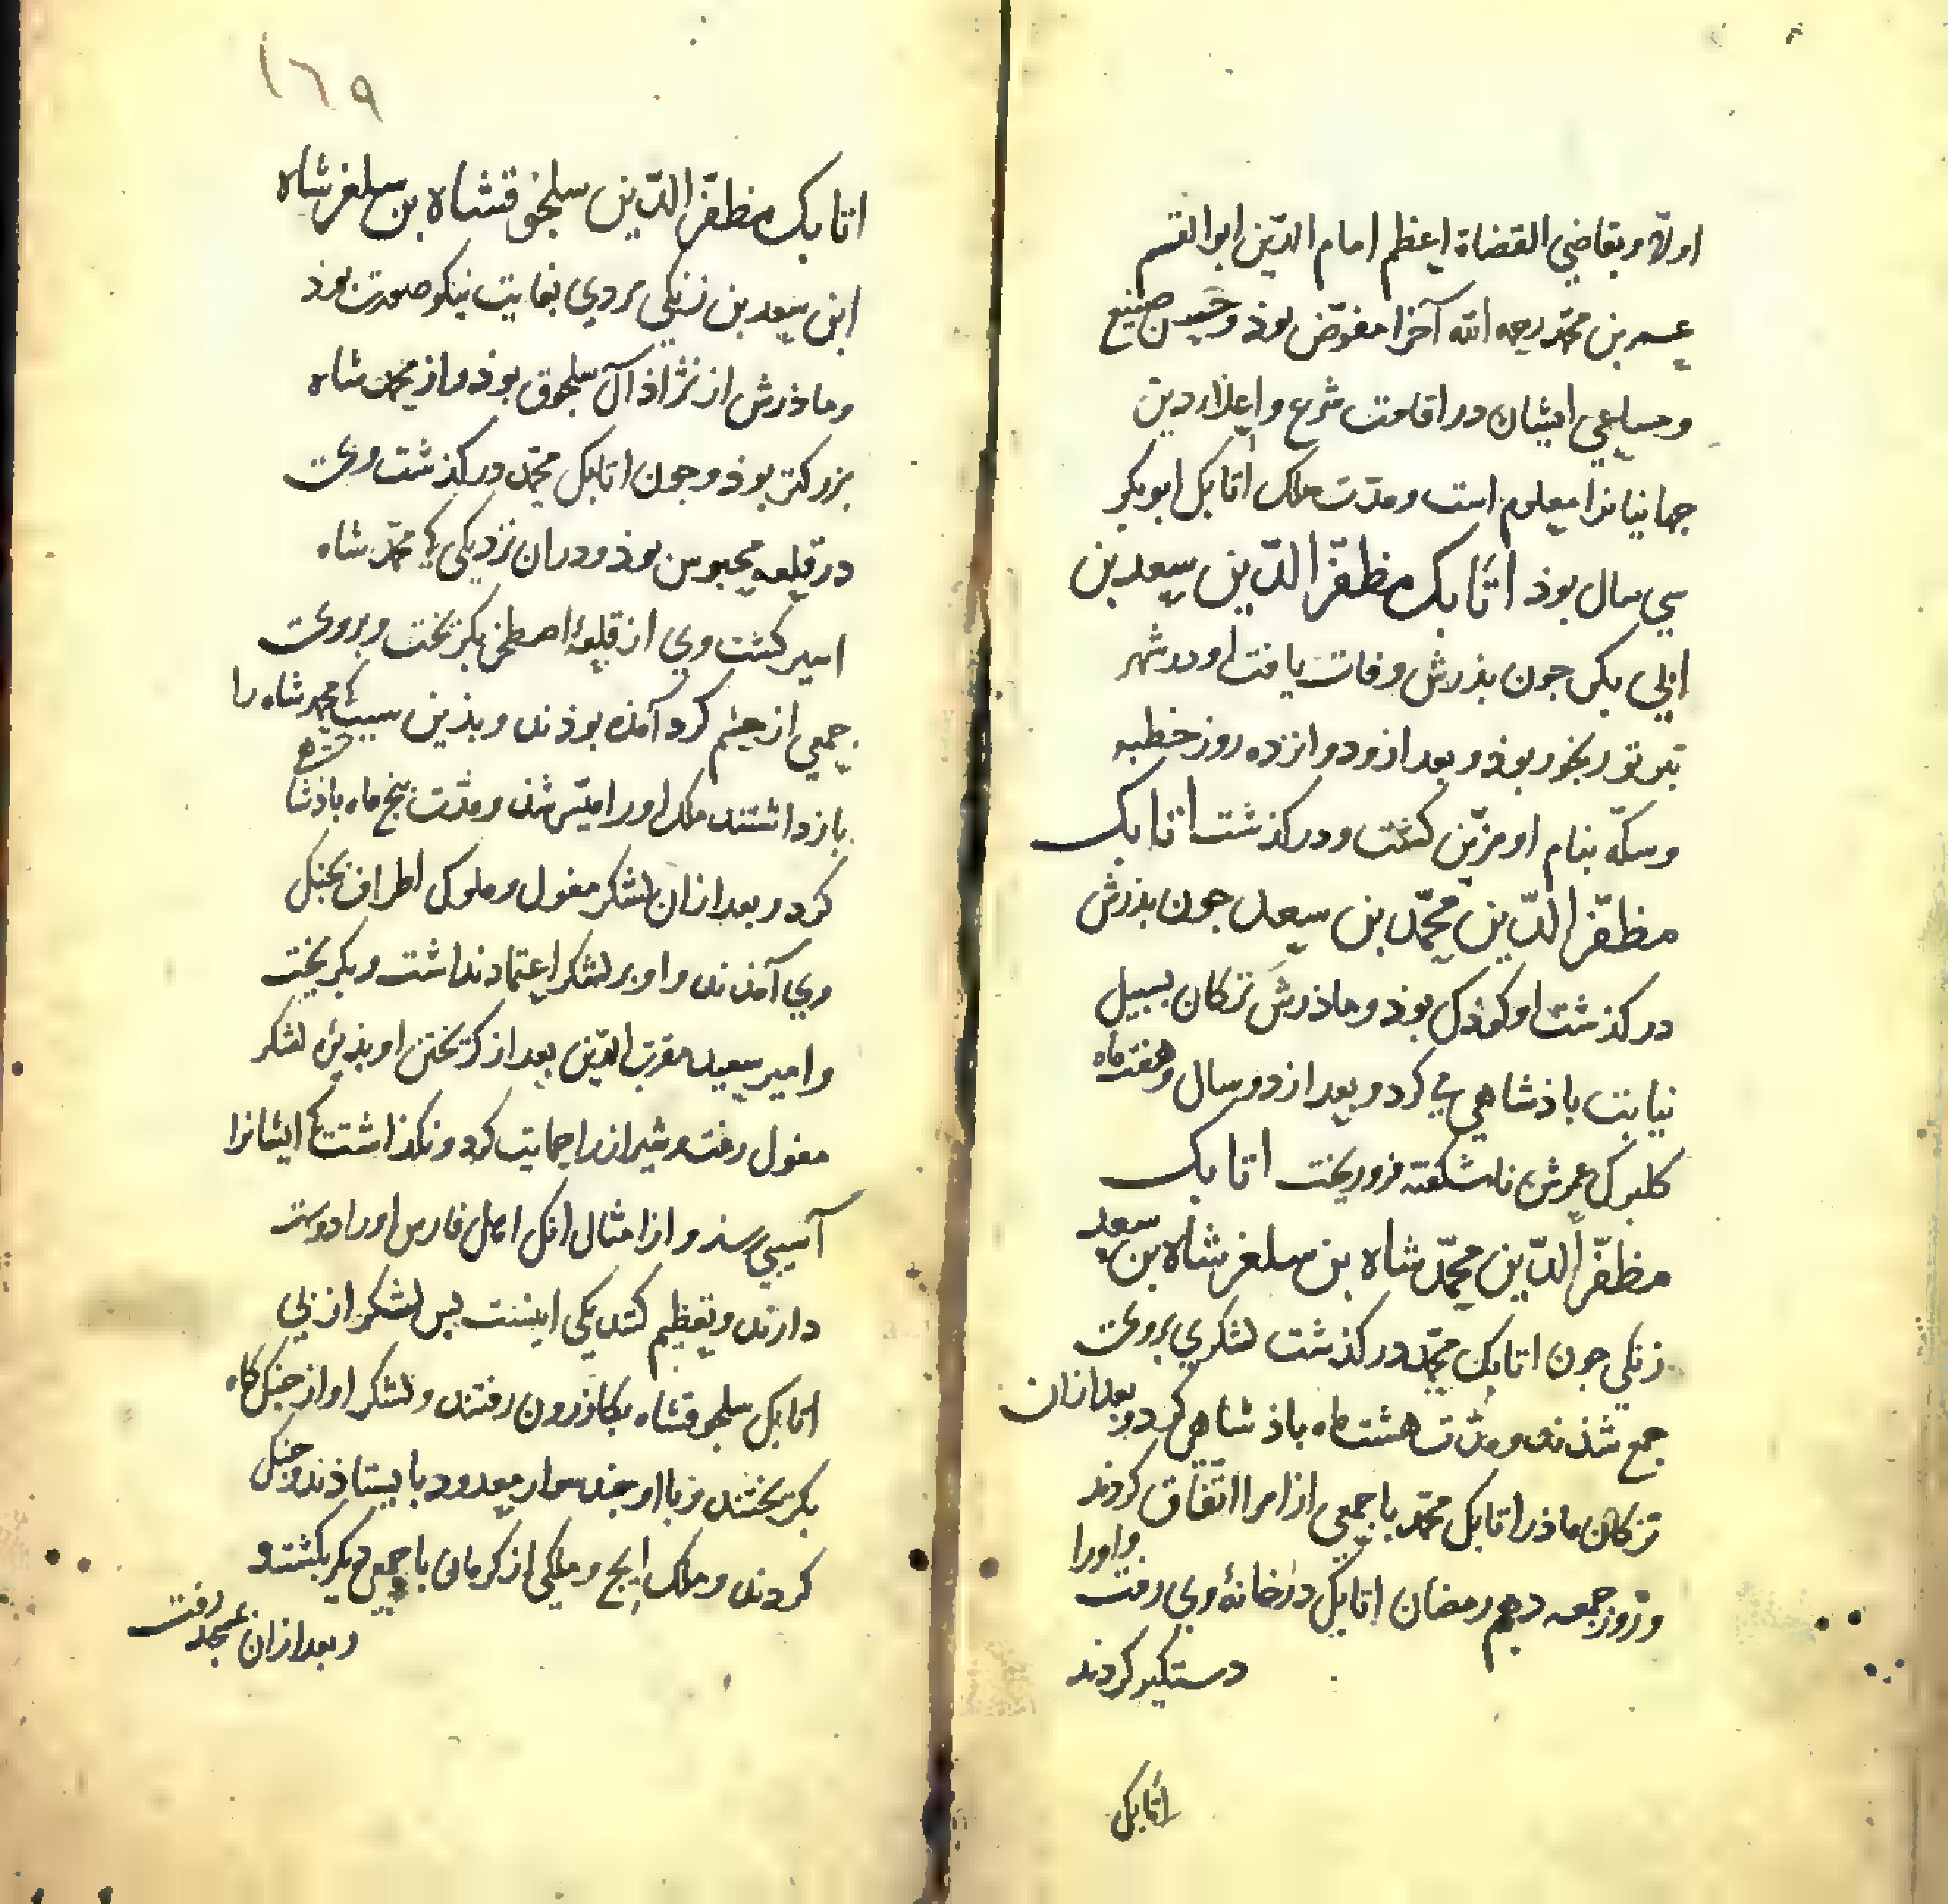 اولا و بقاضي القضاة اعظم امام الدّين ابو القسم
عمر بن محمّد رحمه الله آخرا مفوّض بوذ و حسن صنيع
و مساعي ايشان در اقامت شرع و اعلاء دين
جهانيانرا معلوم است و مدّت ملک اتابک ابوبکر
سي سال بوذ اتابک مظفّر الدّين سعد بن
ابي بکر جون بذرش وفات يافت او در شهر
رنجور بوذ و بعد ازو دوانزده روز خطبه
و سکّه بنام او مزيّن کشت و درکذشت اتابک
مظفّر الدّين محمّد بن سعد جون بذرش
درکذشت او کوذک بوذ و ماذرش ترکان بسبيل
نيابت باذشاهي مي کرد و بعد از دو سال و هفت ماه
کلبرک عمرش ناشکفته فرو ريخت اتابک
مظفّر الدّين محمّد شاه بن سلغر شاه بن سعد
زنکي جون اتابک محمّد درکذشت لشکري بروي
جمع شذند و مدّت هشت ماه باذشاهي کرد و بعد ازان
ترکان ماذر اتابک محمّد با جمعي از امرا اتّفاق کردند
و روز جمعه دهم رمضان اتابک در خانهٔ وي رفت و اورا
دستکير کردند
اتابک
١٦٩
اتابک مظفّر الدّين سلجوقشاه بن سلغر شاه
ابن سعد بن زنکي مردي بغايت نيکو صورت بوذ
و ماذرش از نژاذ آل سلجوق بوذ و از محمد شاه
بزرکتر بوذ و جون اتابک محمّد درکذشت وي
در قلعه محبوس بوذ و دران نزديکي که محمّد شاه
اسير کشت وي از قلعهٔ اصطخر بکريخت و بروي
جمعي از حشم کرد آمذه بوذند و بذين سبب که محمد شاه را
باز داشتند ملک اورا ميسّر شذ و مدّت پنج ماه باذشاهي
کرد و بعد ازان لشکر مغول و ملوک اطراف بجنک
وي آمذند و او بر لشکر اعتماد نداشت و بکريخت
و امير سعيد مقرب الدّين بعد از کريختن او بذيرهٔ لشکر
مغول رفت و شيراز را حمايت کرد و نکذاشت که ايشانرا
آسيبي رسذ و از امثال انک اهل فارس اورا دوست
دارند و تعظيم کنند يکي اينست بس لشکر از بي
اتابک سلجوقشاه بکازرون رفتند و لشکر او از جنک کاه
بکريختند و با او جند سوار معدود بايستاذند و جنک
کردند و ملک ايج و ملکي از کرمان با جمعي ديکر بکشت و
و بعد ازان بمسجد رفت